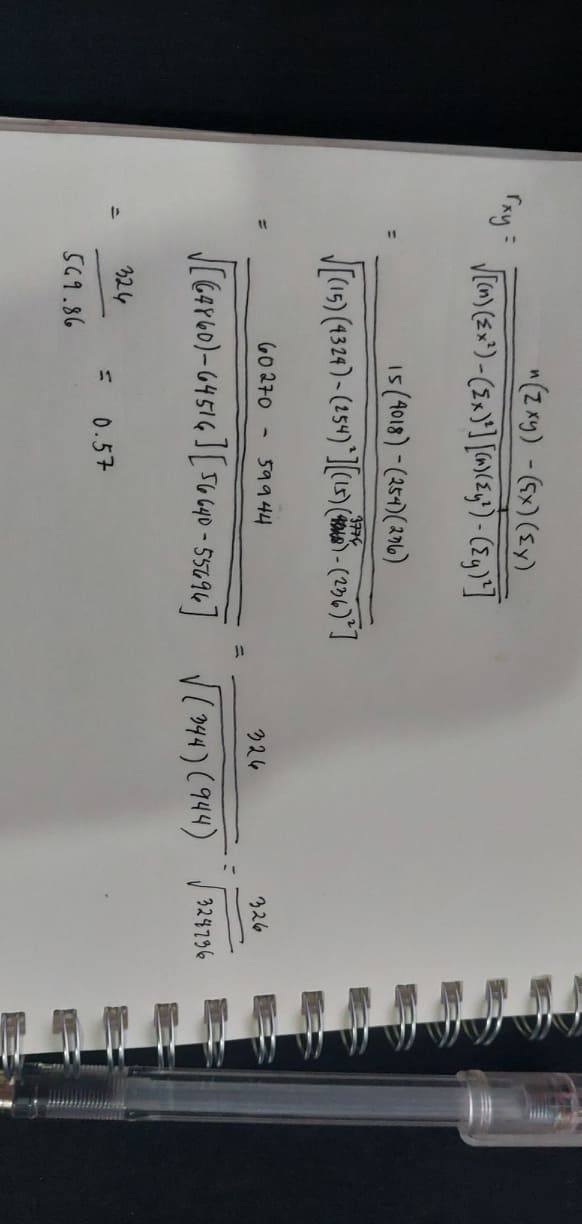 r_xy = n(Σxy) - (Σx)(Σy) / √[(n)(Σx²) - (Σx)²][(n)(Σy²) - (Σy)²]
= 15(4018) - (254)(236) / √[(15)(4324) - (254)²][(15)(3776) - (236)²]
= 60270 - 59944 / √[(64860) - 64516][56640 - 55696] = 326 / √(344)(944) = 326 / √324736
= 326 / 569.86 = 0.57